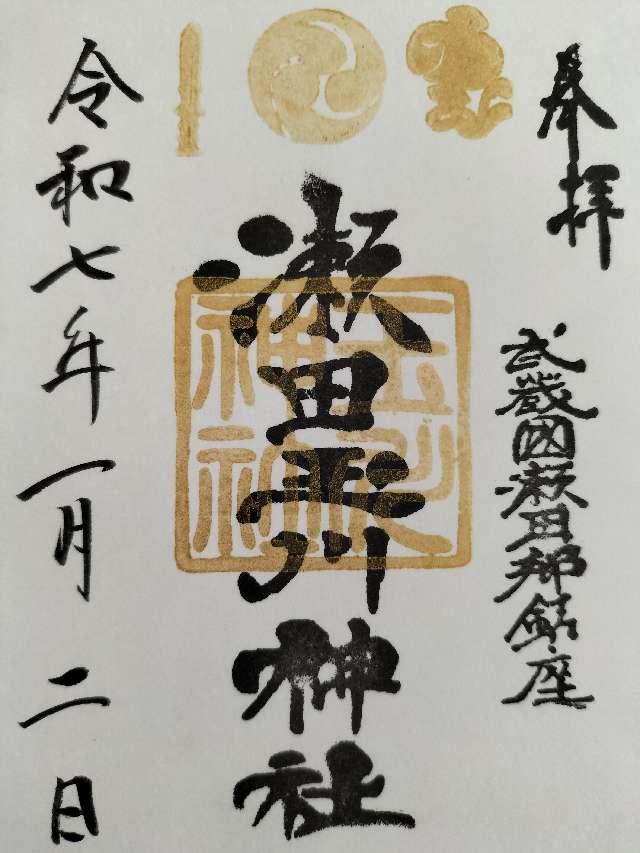 奉拝
武蔵國瀬田郷鎮座
瀬田玉川神社
玉川
神社
令和七年一月二日